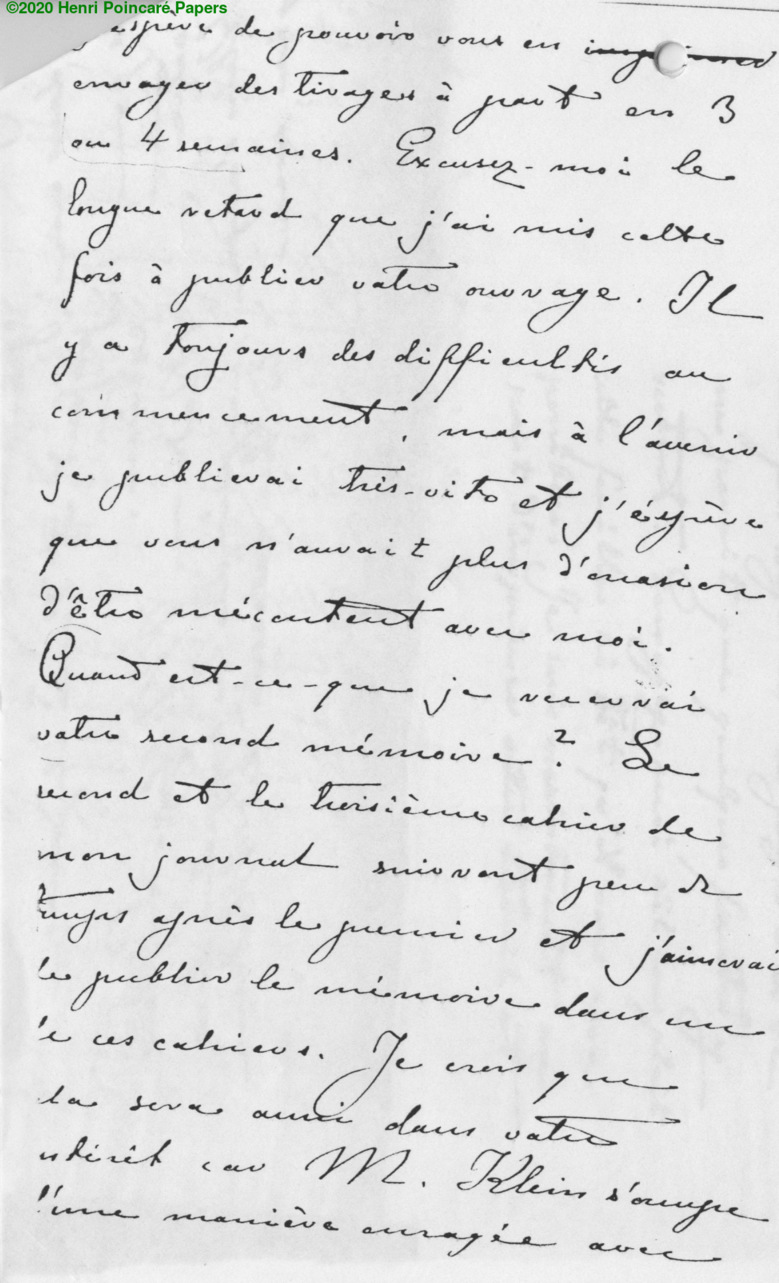 ©2020 Henri Poincaré Papers
j'espère de pouvoir vous en
envoyer des tirages à part en 3
ou 4 semaines. Excusez-moi le
longue retard que j'ai mis cette
fois à publier votre ouvrage. Il
y a toujours des difficultés au
commencement, mais à l'avenir
je publierai très-vite et j'éspère
que vous n'auvait plus d'ocasion
d'être mécontent avec moi.
Quand est-ce-que je recevrai
votre second mémoire? Le
second et le troisième cahier de
mon journal suivont peu de
temps après le premier et j'aimerai
le publier le mémoire dans un
de ces cahiers. Je crois que
la sera aussi dans votre
ntérêt car M. Klein s'occupe
d'une manière enragée avec